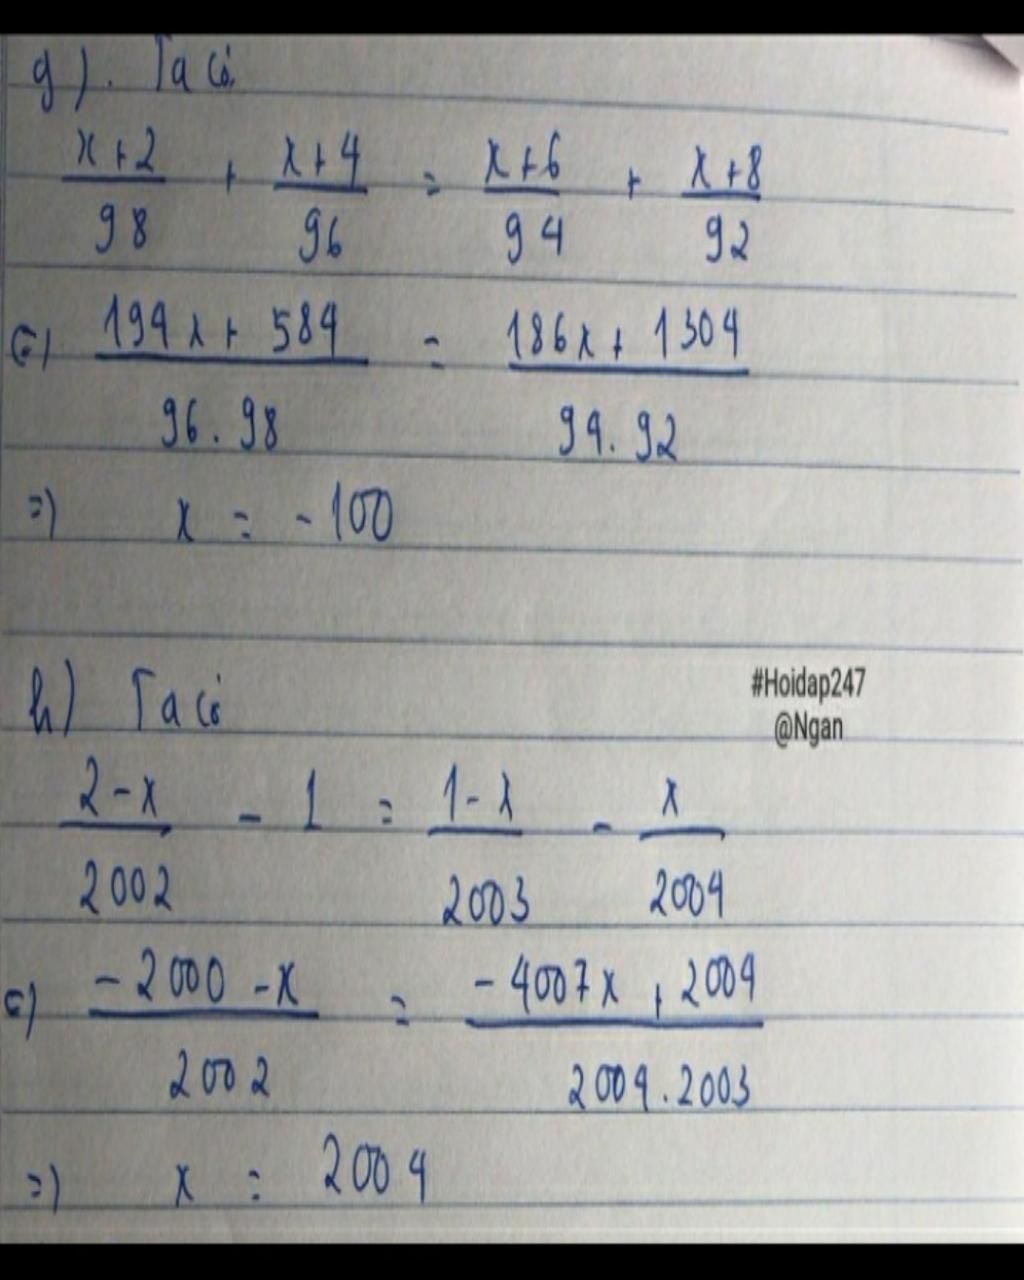 g). Ta có
x+2/98 + x+4/96 = x+6/94 + x+8/92
(=) 194x + 584/96.98 = 186x + 1304/94.92
=) x = -100
h) Ta có
#Hoidap247
@Ngan
2-x/2002 - 1 = 1-x/2003 - x/2004
(=) -2000 -x/2002 = -4007x + 2004/2004.2003
=) x = 2004